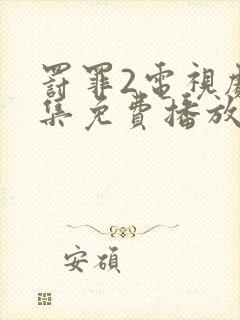 罰罪2電視劇
集免費播放
安碩